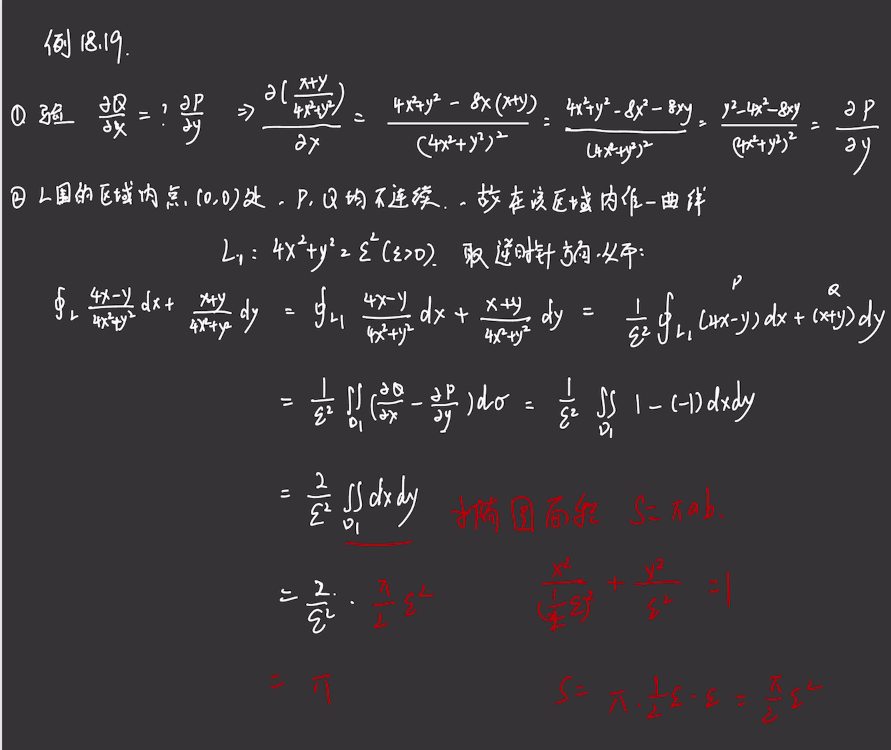 例 18.19.
① 验 ∂Q/∂x =? ∂P/∂y ⇒ ∂((x+y)/(4x²+y²))/∂x = (4x²+y² - 8x(x+y))/(4x²+y²)² = (4x²+y²-8x²-8xy)/(4x²+y²)² = (y²-4x²-8xy)/(4x²+y²)² = ∂P/∂y
② L围的区域内点(0,0)处, P, Q均不连续, 故在该区域内作一曲线
L₁: 4x²+y²=ε²(ε>0) 取逆时针方向,从而:
∮_L (4x-y)/(4x²+y²) dx + (x+y)/(4x²+y²) dy = ∮_L₁ (4x-y)/(4x²+y²) dx + (x+y)/(4x²+y²) dy = 1/ε² ∮_L₁ (4x-y)dx + (x+y)dy
P Q
= 1/ε² ∬_D₁ (∂Q/∂x - ∂P/∂y)dσ = 1/ε² ∬_D₁ 1-(-1)dxdy
= 2/ε² ∬_D₁ dxdy 椭圆面积 S=πab.
= 2/ε² · π/2 ε² x²/(½ε)² + y²/ε² = 1
= π S= π·½ε·ε = π/2 ε²